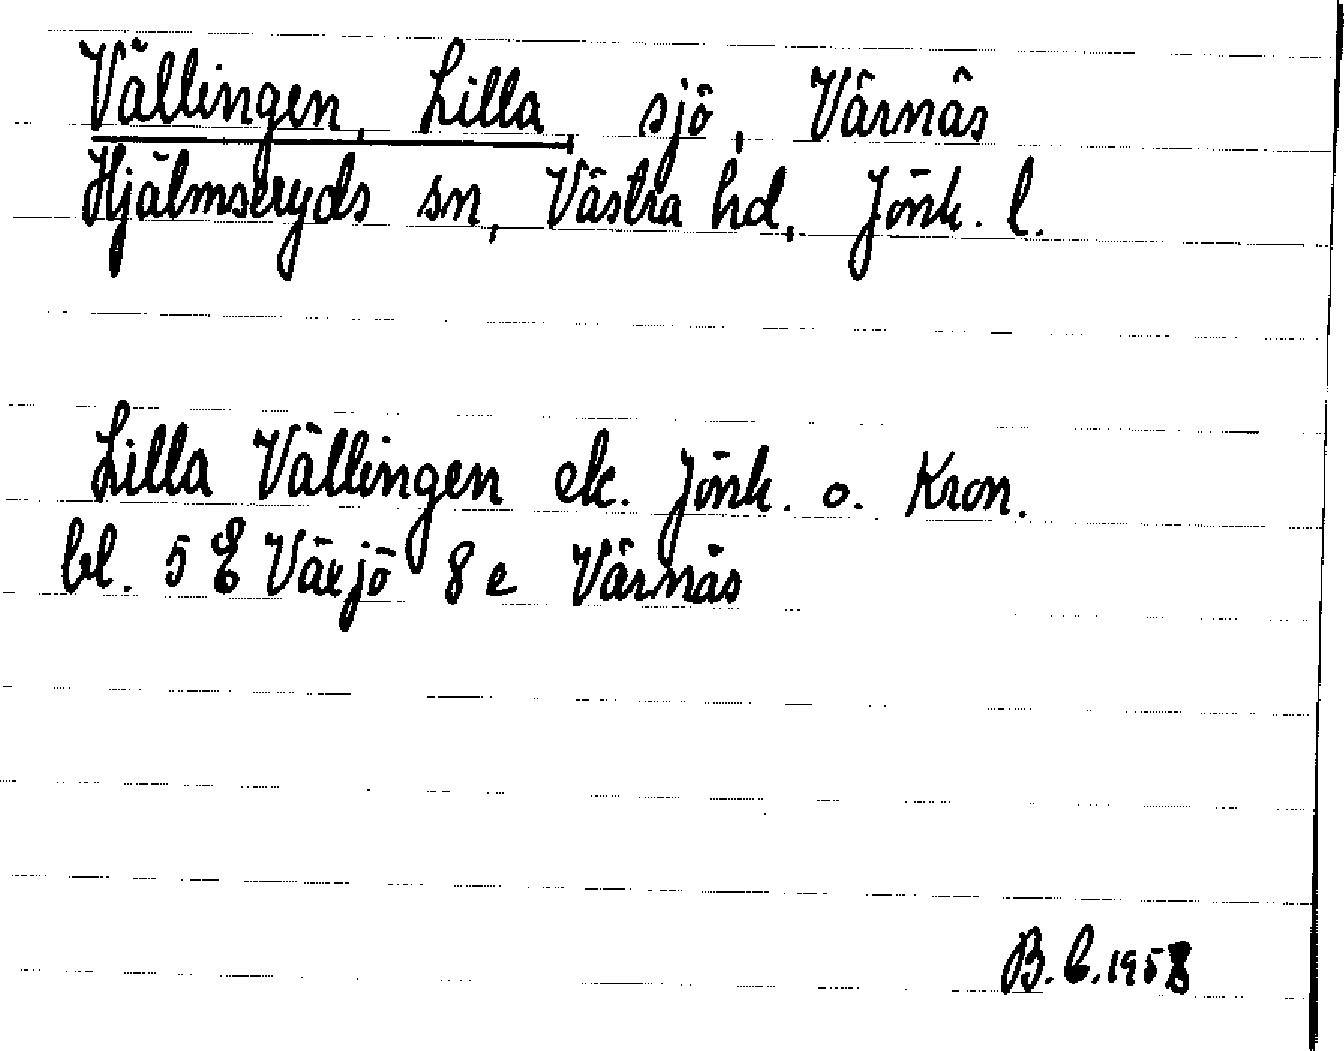 Vällingen, Lilla, sjö, Värnäs
Hjälmseryds sn, Västra hd, Jönk. l.
Lilla Vällingen ek. Jönk. o. Kron.
bl. 5 E Växjö 8 e Värnäs
B. E. 1958